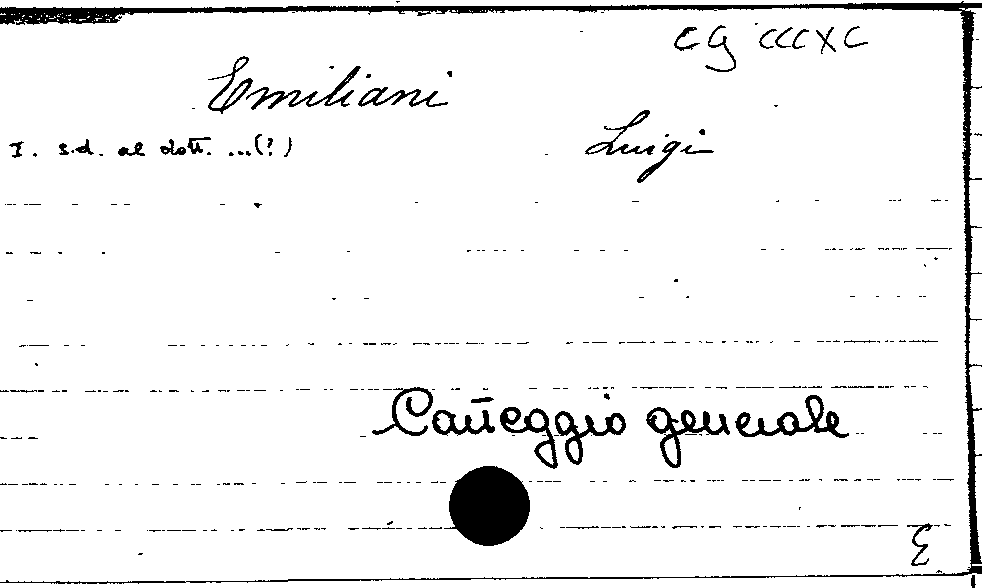 CG CCCXC
Emiliani
Luigi
I. s.d. al dott. ...(?)
Carteggio generale
E